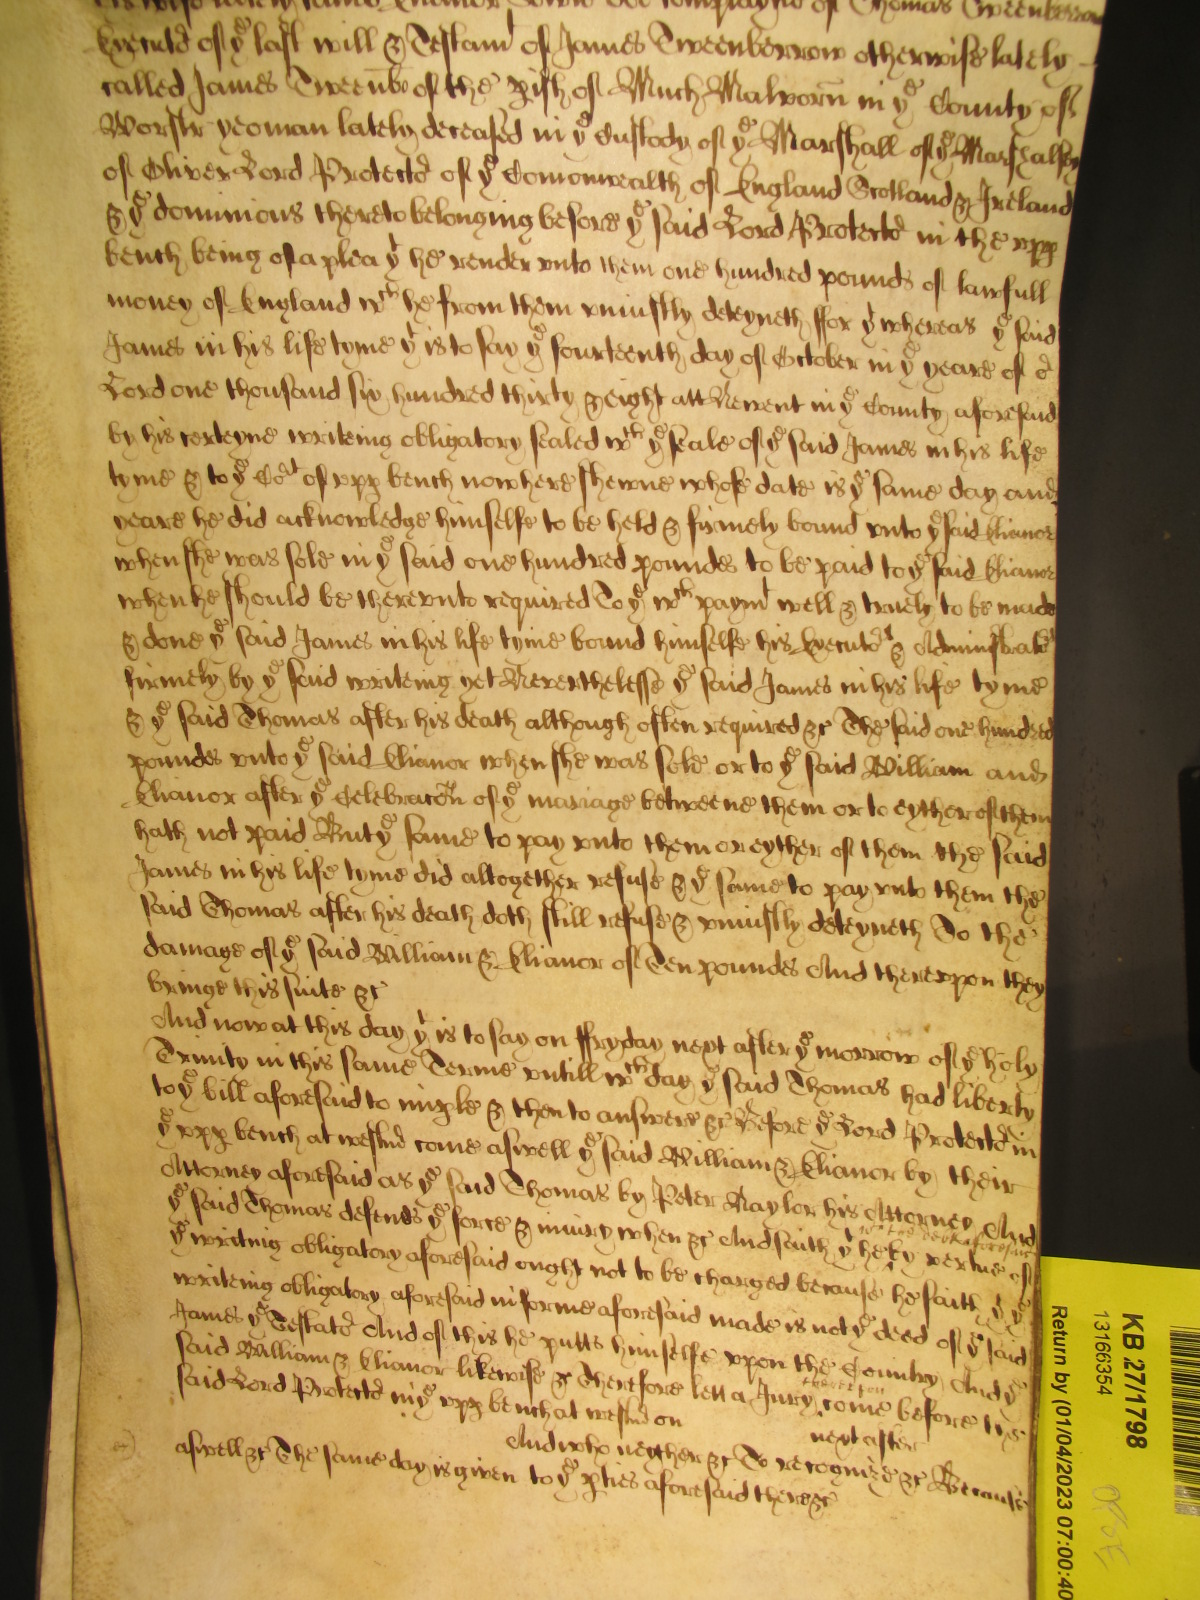 his wife lately called Elianor doe complayne of Thomas Tweenberrow
Executor of ye last will & Testamt of James Tweenberrow otherwise lately
called James Tweenb of the pish of Much Malvorn in ye County of
Worstr yeoman lately deceased in ye Custody of ye Marshall of ye Marshalsey
of Oliver Lord Protector of ye Comonwealth of England Scotland & Ireland
& ye dominions thereto belonging before ye said Lord Protector in the upp
bench being of a plea yt he render unto them one hundred pounds of lawfull
money of England wch he from them uniustly deteyneth ffor yt whereas ye said
James in his life tyme yt is to say ye fourteenth day of October in ye yeare of or
Lord one thousand six hundred thirty & eight att Newent in ye County aforesaid
by his certeyne writeing obligatory sealed wth ye seale of ye said James in his life
tyme & to ye Cort of upp bench now here shewne whose date is ye same day and
yeare he did acknowledge himselfe to be held & firmely bound unto ye said Elianor
when she was sole in ye said one hundred poundes to be paid to ye said Elianor
when he should be thereunto required To ye wch paymt well & truely to be made
& done ye said James in his life tyme bound himselfe his Executors & Administrators
firmely by ye said writeing yet Neverthelesse ye said James in his life tyme
& ye said Thomas after his death although often required &c The said one hundred
poundes unto ye said Elianor when she was sole or to ye said William and
Elianor after ye Celebracon of ye mariage betweene them or to eyther of them
hath not paid But ye same to pay unto them or eyther of them the said
James in his life tyme did altogether refuse & ye same to pay unto them the
said Thomas after his death doth still refuse & uniustly deteyneth To the
damage of ye said William & Elianor of Ten poundes And thereupon they
bringe this suite &c
And now at this day yt is to say on ffryday next after ye morrow of ye holy
Trinity in this same Terme untill wch day ye said Thomas had liberty
to ye bill aforesaid to imple & then to answere &c Before ye Lord Protector in
ye upp bench at westmr come aswell ye said William & Elianor by their
Attorney aforesaid as ye said Thomas by Peter Naylor his Attorney And
ye said Thomas defends ye force & iniury when &c And saith yt he by vertue of
wth the debt aforesaid
ye writing obligatory aforesaid ought not to be charged because he saith yt ye
writeing obligatory aforesaid in forme aforesaid made is not ye deed of ye said
James ye Testator And of this he putts himselfe upon the Country And ye
said William & Elianor likewise &c Therefore lett a Jury thereupon come before the
said Lord Protector in ye upp bench at westmr on
next after
And who neyther &c To recognize &c Because
aswell &c The same day is given to ye pties aforesaid there &c
KB 27/1798
13166354
Return by (01/04/2023 07:00:40